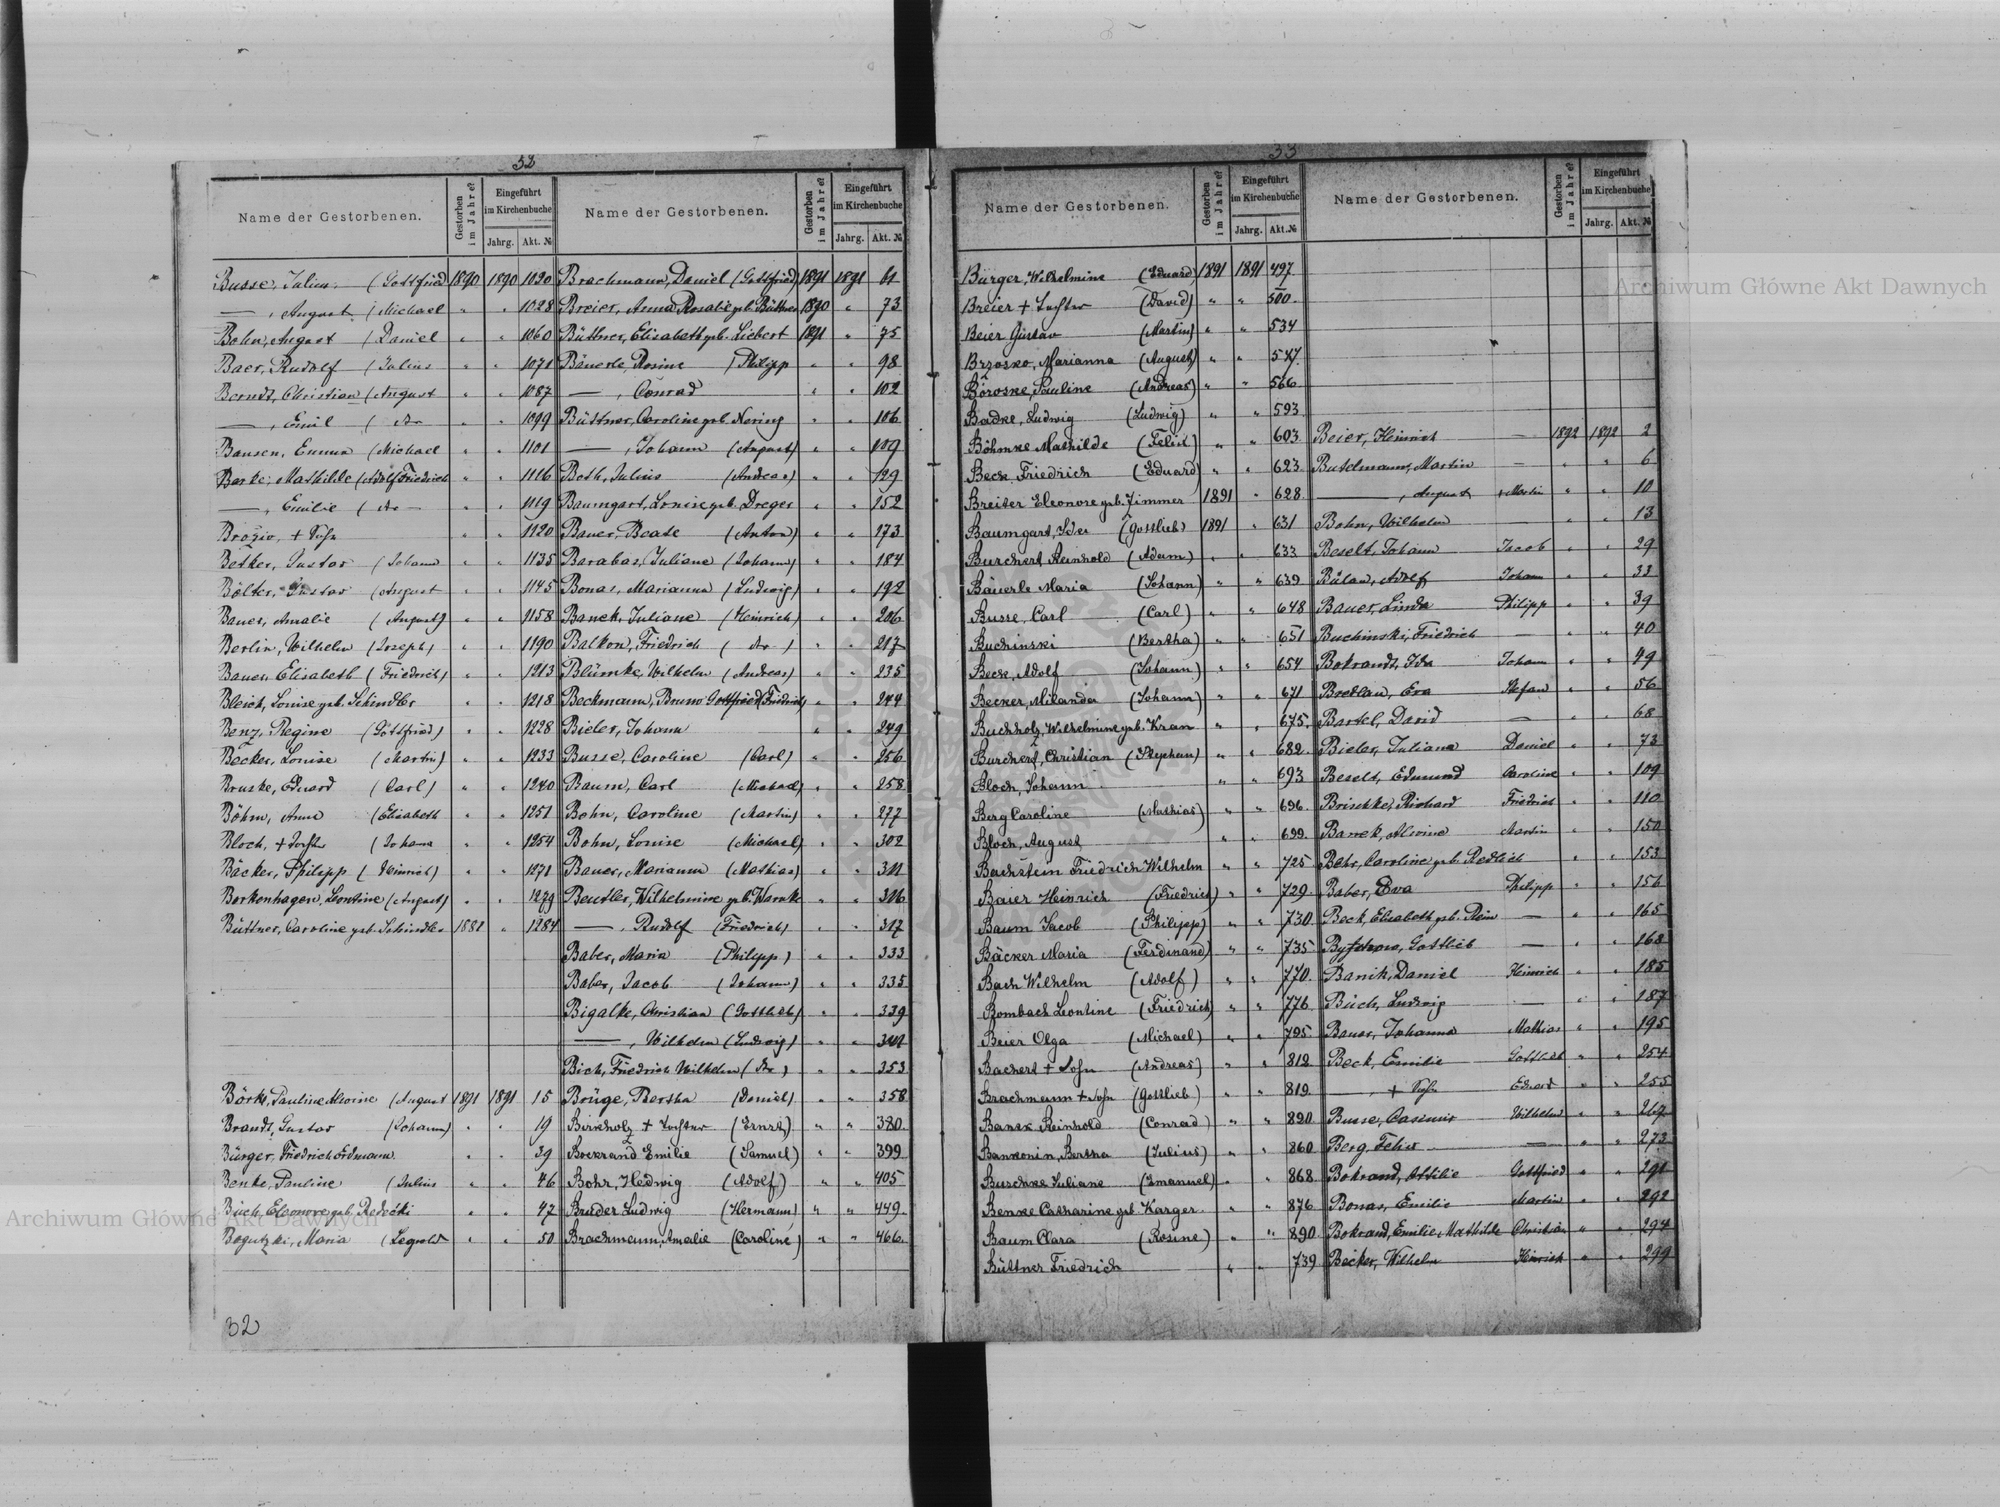 32
Name der Gestorbenen.
Gestorben im Jahre?
Eingeführt im Kirchenbuche
Jahrg. Akt. №
Busse, Julius (Gottfried 1890 1890 1020
—, August (Michael " " 1028
Bohn, August (Daniel " " 1060
Baer, Rudolf (Julius " " 1071
Berndt, Christian (August " " 1087
—, Emil (do " " 1099
Bansen, Emma (Michael " " 1101
Barke, Mathilde (Adolf Friedrich " " 1116
—, Emilie (do — " " 1119
Brozio, + Sohn " " 1120
Betker, Gustav (Johann " " 1135
Bölter, Gustav (August " " 1145
Bauer, Amalie (August) " " 1158
Berlin, Wilhelm (Joseph) " " 1190
Bauer, Elisabeth (Friedrich) " " 1213
Bleick, Louise geb. Schindler " " 1218
Benz, Regine (Gottfried) " " 1228
Becker, Louise (Martin) " " 1233
Bruske, Eduard (Carl) " " 1240
Böhm, Anna (Elisabeth " " 1251
Bloch, + Tochter (Johann " " 1254
Bäcker, Philipp (Heinrich) " " 1271
Borkenhagen, Leontine (August) " " 1279
Büttner, Caroline geb. Schindler 1881 " 1284
Börk, Pauline Alwine (August 1891 1891 15
Brandt, Gustav (Johann) " " 19
Bürger, Friedrich Erdmann " " 39
Benke, Pauline (Julius " " 46
Buch, Eleonore geb. Redetzki " " 47
Bogutzki, Maria (Leopold " " 50
Name der Gestorbenen.
Gestorben im Jahre?
Eingeführt im Kirchenbuche
Jahrg. Akt. №
Brachmann, Daniel (Gottfried) 1891 1891 61
Breier, Anna Rosalie geb. Büttner 1890 " 73
Büttner, Elisabeth geb. Liebert 1891 " 75
Bäuerle, Rosine (Philipp " " 98
—, Conrad " " 102
Büttner, Caroline geb. Nering " " 106
—, Johann (August) " " 109
Both, Julius (Andreas) " " 129
Baumgart, Louise geb. Dreger " " 152
Bauer, Beate (Anton) " " 173
Barabas, Juliane (Johann) " " 184
Bonas, Marianna (Ludwig) " " 192
Banek, Juliane (Heinrich) " " 206
Balkon, Friedrich (do) " " 217
Blümke, Wilhelm (Andreas) " " 235
Beckmann, Bruno Gottfried (Friedrich) " " 244
Bieler, Johann " " 249
Busse, Caroline (Carl) " " 256
Baum, Carl (Michael) " " 258
Bohn, Caroline (Martin) " " 277
Bohn, Louise (Michael) " " 302
Bauer, Marianna (Mathias) " " 311
Beutler, Wilhelmine geb. Warnke " " 316
—, Rudolf (Friedrich) " " 317
Baber, Maria (Philipp) " " 333
Baber, Jacob (Johann) " " 335
Bigalke, Christian (Gottlieb) " " 339
—, Wilhelm (Ludwig) " " 341
Bich, Friedrich Wilhelm (do) " " 353
Brüge, Bertha (Daniel) " " 358
Birkholz + Tochter (Ernst) " " 380
Bockrand Emilie (Samuel) " " 399
Bohr, Hedwig (Adolf) " " 405
Bruder Ludwig (Hermann) " " 449
Brachmann, Amalie (Caroline) " " 466
32
33
Name der Gestorbenen.
Gestorben im Jahre?
Eingeführt im Kirchenbuche
Jahrg. Akt. №
Bürger, Wilhelmine (Eduard) 1891 1891 497
Breier + Tochter (David) " " 500
Beier Gustav (Martin) " " 534
Brzosko, Marianna (August) " " 547
Boroske, Pauline (Andreas) " " 566
Badke, Ludwig (Ludwig) " " 593
Böhmke Mathilde (Felix) " " 603
Beck Friedrich (Eduard) " " 623
Breiter Eleonore geb. Zimmer 1891 " 628
Baumgart, Ida (Gottlieb) 1891 " 631
Burchert Reinhold (Adam) " " 633
Bäuerle Maria (Johann) " " 639
Busse, Carl (Carl) " " 648
Buchinski (Bertha) " " 651
Beck, Adolf (Johann) " " 654
Becker, Milanda (Johann) " " 671
Buchholz, Wilhelmine geb. Kran " " 675
Burchert, Christian (Stephan) " " 682
Bloch, Johann " " 693
Berg Caroline (Mathias) " " 696
Bloch, August " " 699
Bachstein Friedrich Wilhelm " " 725
Baier Heinrich (Friedrich) " " 729
Baum Jacob (Philipp) " " 730
Bäcker Maria (Ferdinand) " " 735
Bach Wilhelm (Adolf) " " 770
Bombach Leontine (Friedrich) " " 776
Beier Olga (Michael) " " 795
Bachert + Sohn (Andreas) " " 812
Brachmann + Sohn (Gottlieb) " " 819
Banek Reinhold (Conrad) " " 820
Bankonin, Bertha (Julius) " " 860
Buschke Juliane (Emanuel) " " 868
Benke Catharine geb. Karger " " 876
Baum Clara (Rosine) " " 890
Büttner Friedrich " " 739
Name der Gestorbenen.
Gestorben im Jahre?
Eingeführt im Kirchenbuche
Jahrg. Akt. №
Beier, Heinrich — 1892 1892 2
Butelmann, Martin — " " 6
—, August + Martin " " 10
Bohn, Wilhelm — " " 13
Beselt, Johann Jacob " " 29
Bülan, Adolf Johann " " 33
Bauer, Linda Philipp " " 39
Buchinski, Friedrich — " " 40
Bokrandt, Ida Johann " " 49
Bredlau, Eva Stefan " " 56
Bartel, David — " " 68
Bieler, Juliana Daniel " " 73
Beselt, Edmund Caroline " " 109
Brischke, Richard Friedrich " " 110
Banek, Alwine Martin " " 150
Behr, Caroline geb. Redlich " " 153
Baber, Eva Philipp " " 156
Beck, Elisabeth geb. Rein — " " 165
Gottlieb — " " 168
Banik, Daniel Heinrich " " 185
Buch, Ludwig — " " 187
Bauer, Johanna Mathias " " 195
Beck, Emilie Gottlieb " " 254
—, + Sohn Eduard " " 255
Busse, Casimir Wilhelm " " 267
Berg, Felix — " " 273
Bokrand, Ottilie Gottfried " " 291
Bonas, Emilie Martin " " 292
Bokrand, Emilie Mathilde Christian " " 294
Becker, Wilhelm Heinrich " " 299
Archiwum Główne Akt Dawnych
Archiwum Główne Akt Dawnych